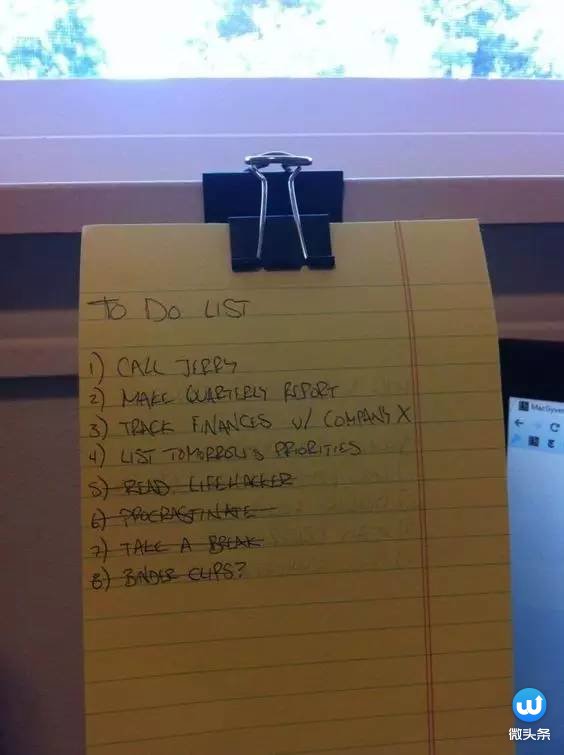 TO DO LIST
1) CALL JERRY
2) MAKE QUARTERLY REPORT
3) TRACK FINANCES W/ COMPANY X
4) LIST TOMORROW'S PRIORITIES
5) READ LIFEHACKER
6) PROCRASTINATE
7) TAKE A BREAK
8) BINDER CLIPS?
MacGyver
微头条